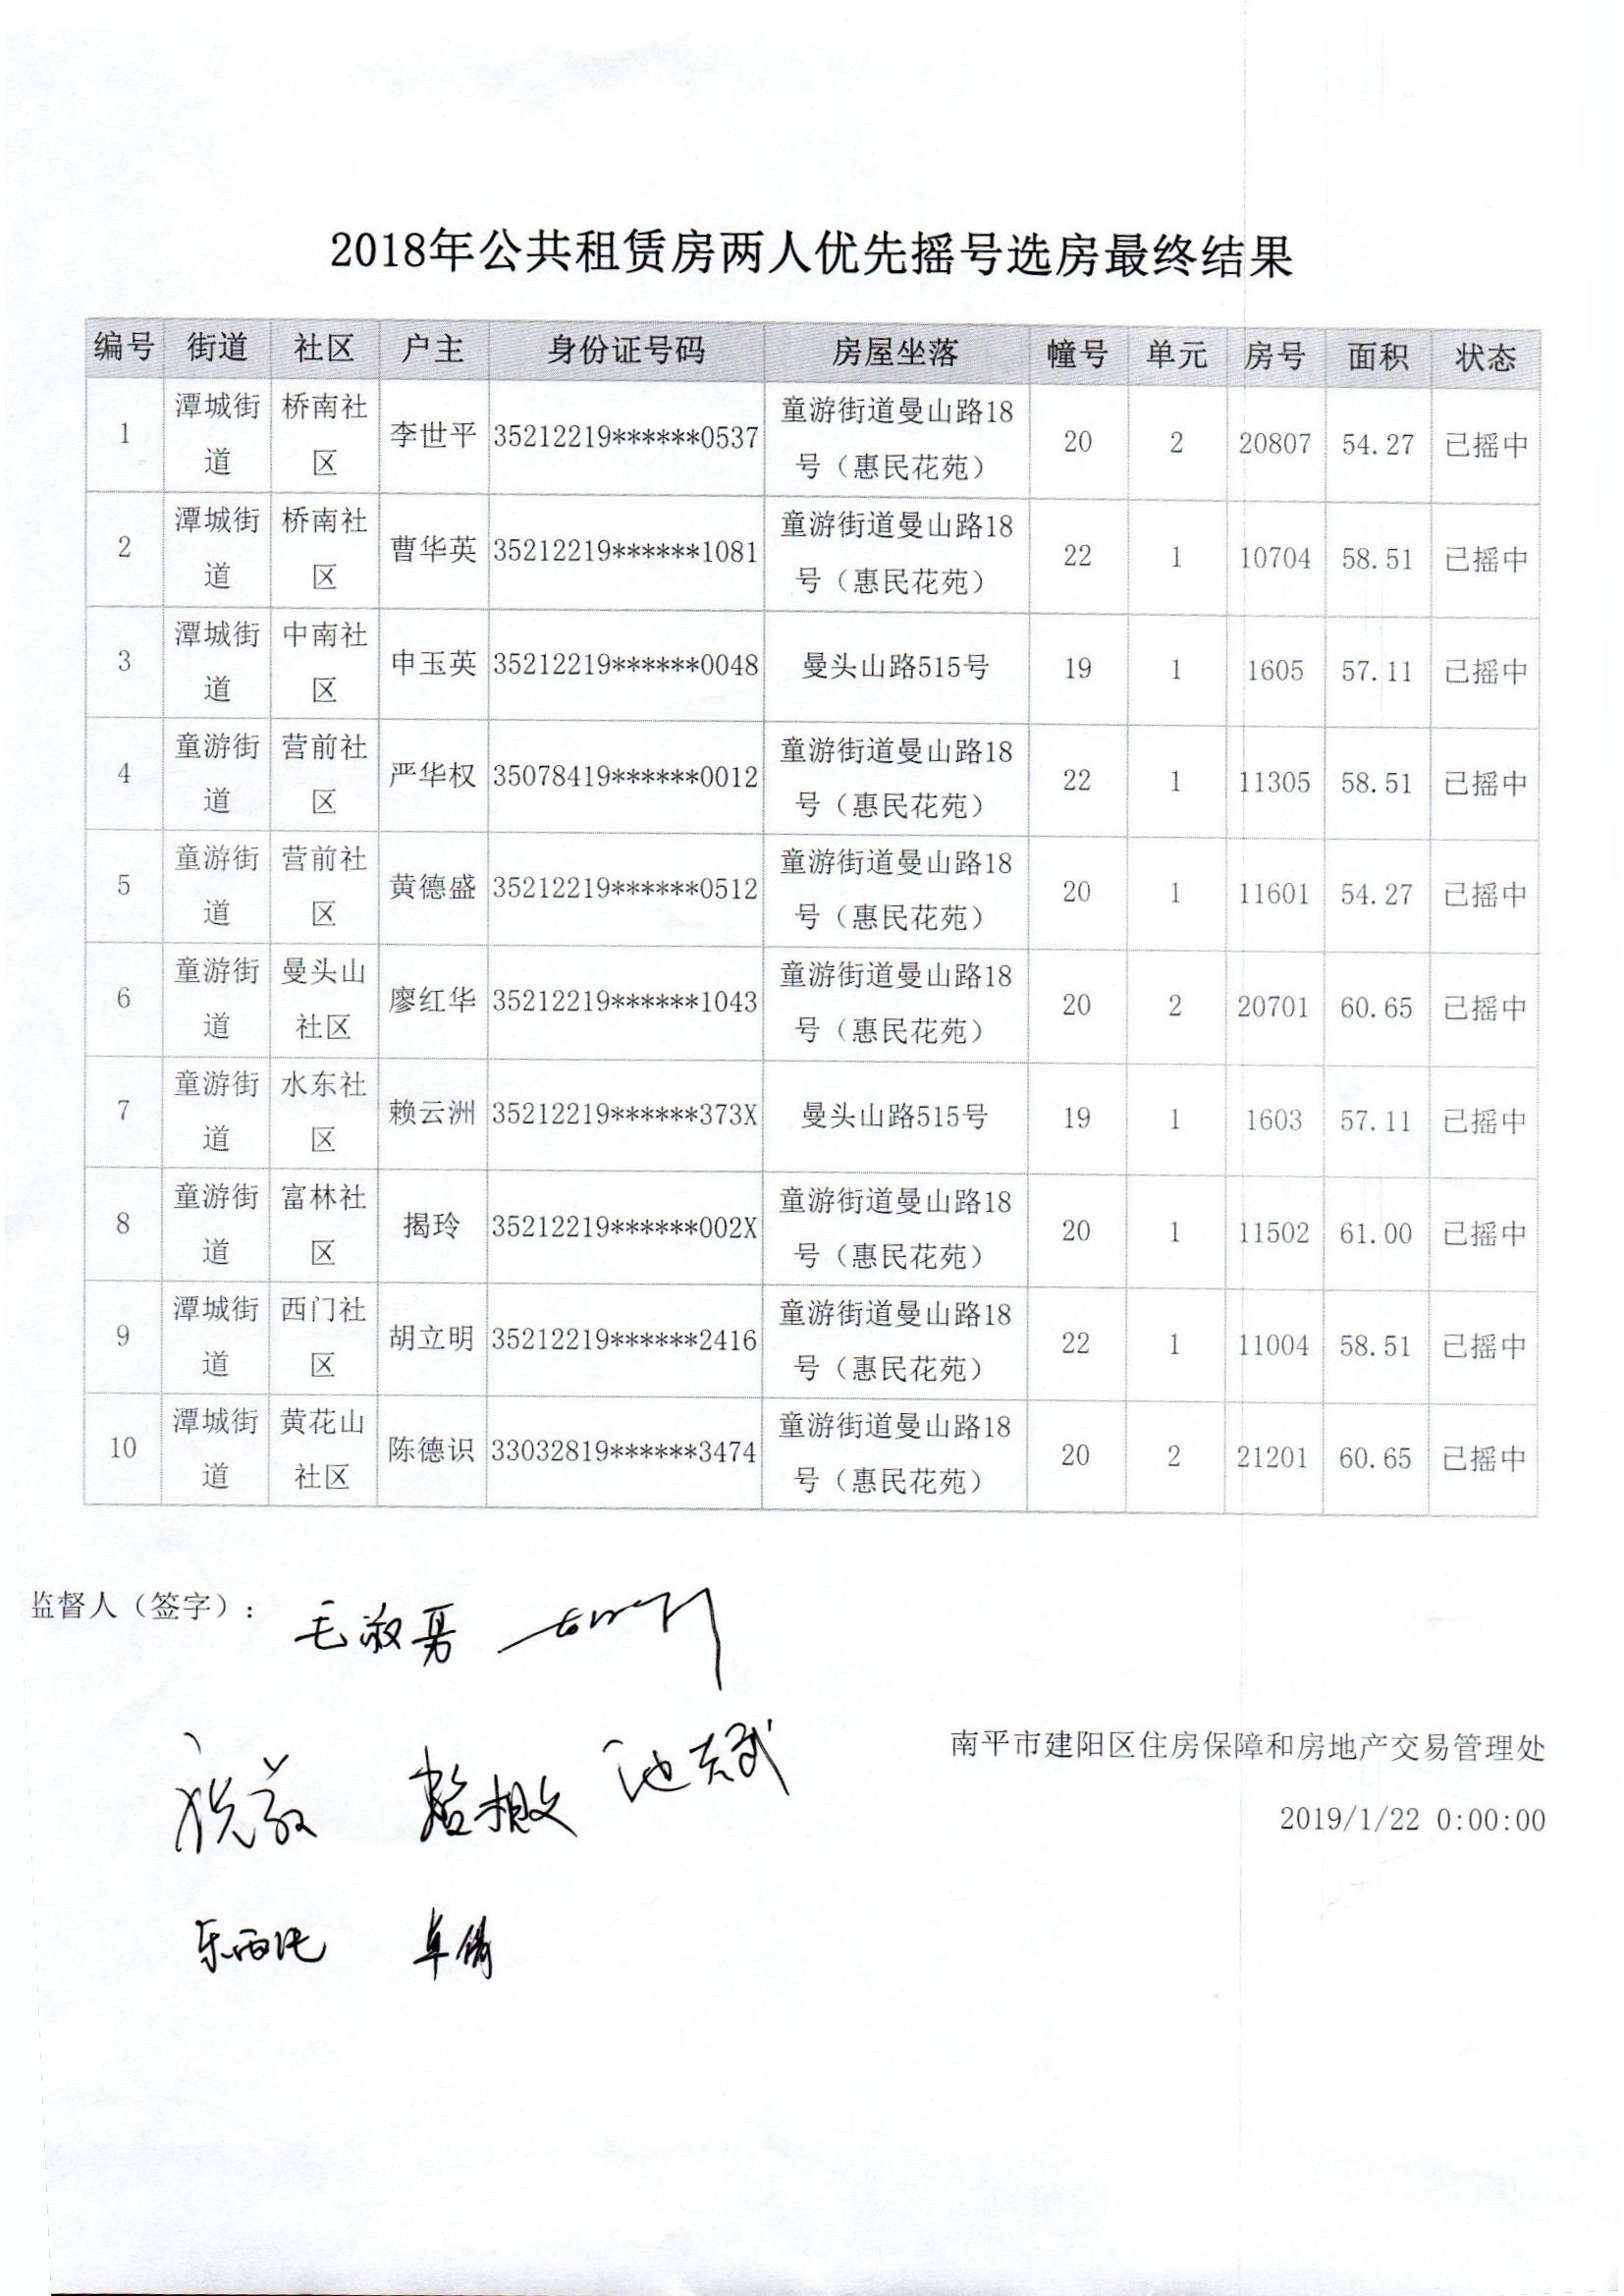 2018年公共租赁房两人优先摇号选房最终结果
编号 街道 社区 户主 身份证号码 房屋坐落 幢号 单元 房号 面积 状态
1 潭城街道 桥南社区 李世平 35212219******0537 童游街道曼山路18号（惠民花苑） 20 2 20807 54.27 已摇中
2 潭城街道 桥南社区 曹华英 35212219******1081 童游街道曼山路18号（惠民花苑） 22 1 10704 58.51 已摇中
3 潭城街道 中南社区 申玉英 35212219******0048 曼头山路515号 19 1 1605 57.11 已摇中
4 童游街道 营前社区 严华权 35078419******0012 童游街道曼山路18号（惠民花苑） 22 1 11305 58.51 已摇中
5 童游街道 营前社区 黄德盛 35212219******0512 童游街道曼山路18号（惠民花苑） 20 1 11601 54.27 已摇中
6 童游街道 曼头山社区 廖红华 35212219******1043 童游街道曼山路18号（惠民花苑） 20 2 20701 60.65 已摇中
7 童游街道 水东社区 赖云洲 35212219******373X 曼头山路515号 19 1 1603 57.11 已摇中
8 童游街道 富林社区 揭玲 35212219******002X 童游街道曼山路18号（惠民花苑） 20 1 11502 61.00 已摇中
9 潭城街道 西门社区 胡立明 35212219******2416 童游街道曼山路18号（惠民花苑） 22 1 11004 58.51 已摇中
10 潭城街道 黄花山社区 陈德识 33032819******3474 童游街道曼山路18号（惠民花苑） 20 2 21201 60.65 已摇中
监督人（签字）：
南平市建阳区住房保障和房地产交易管理处
2019/1/22 0:00:00